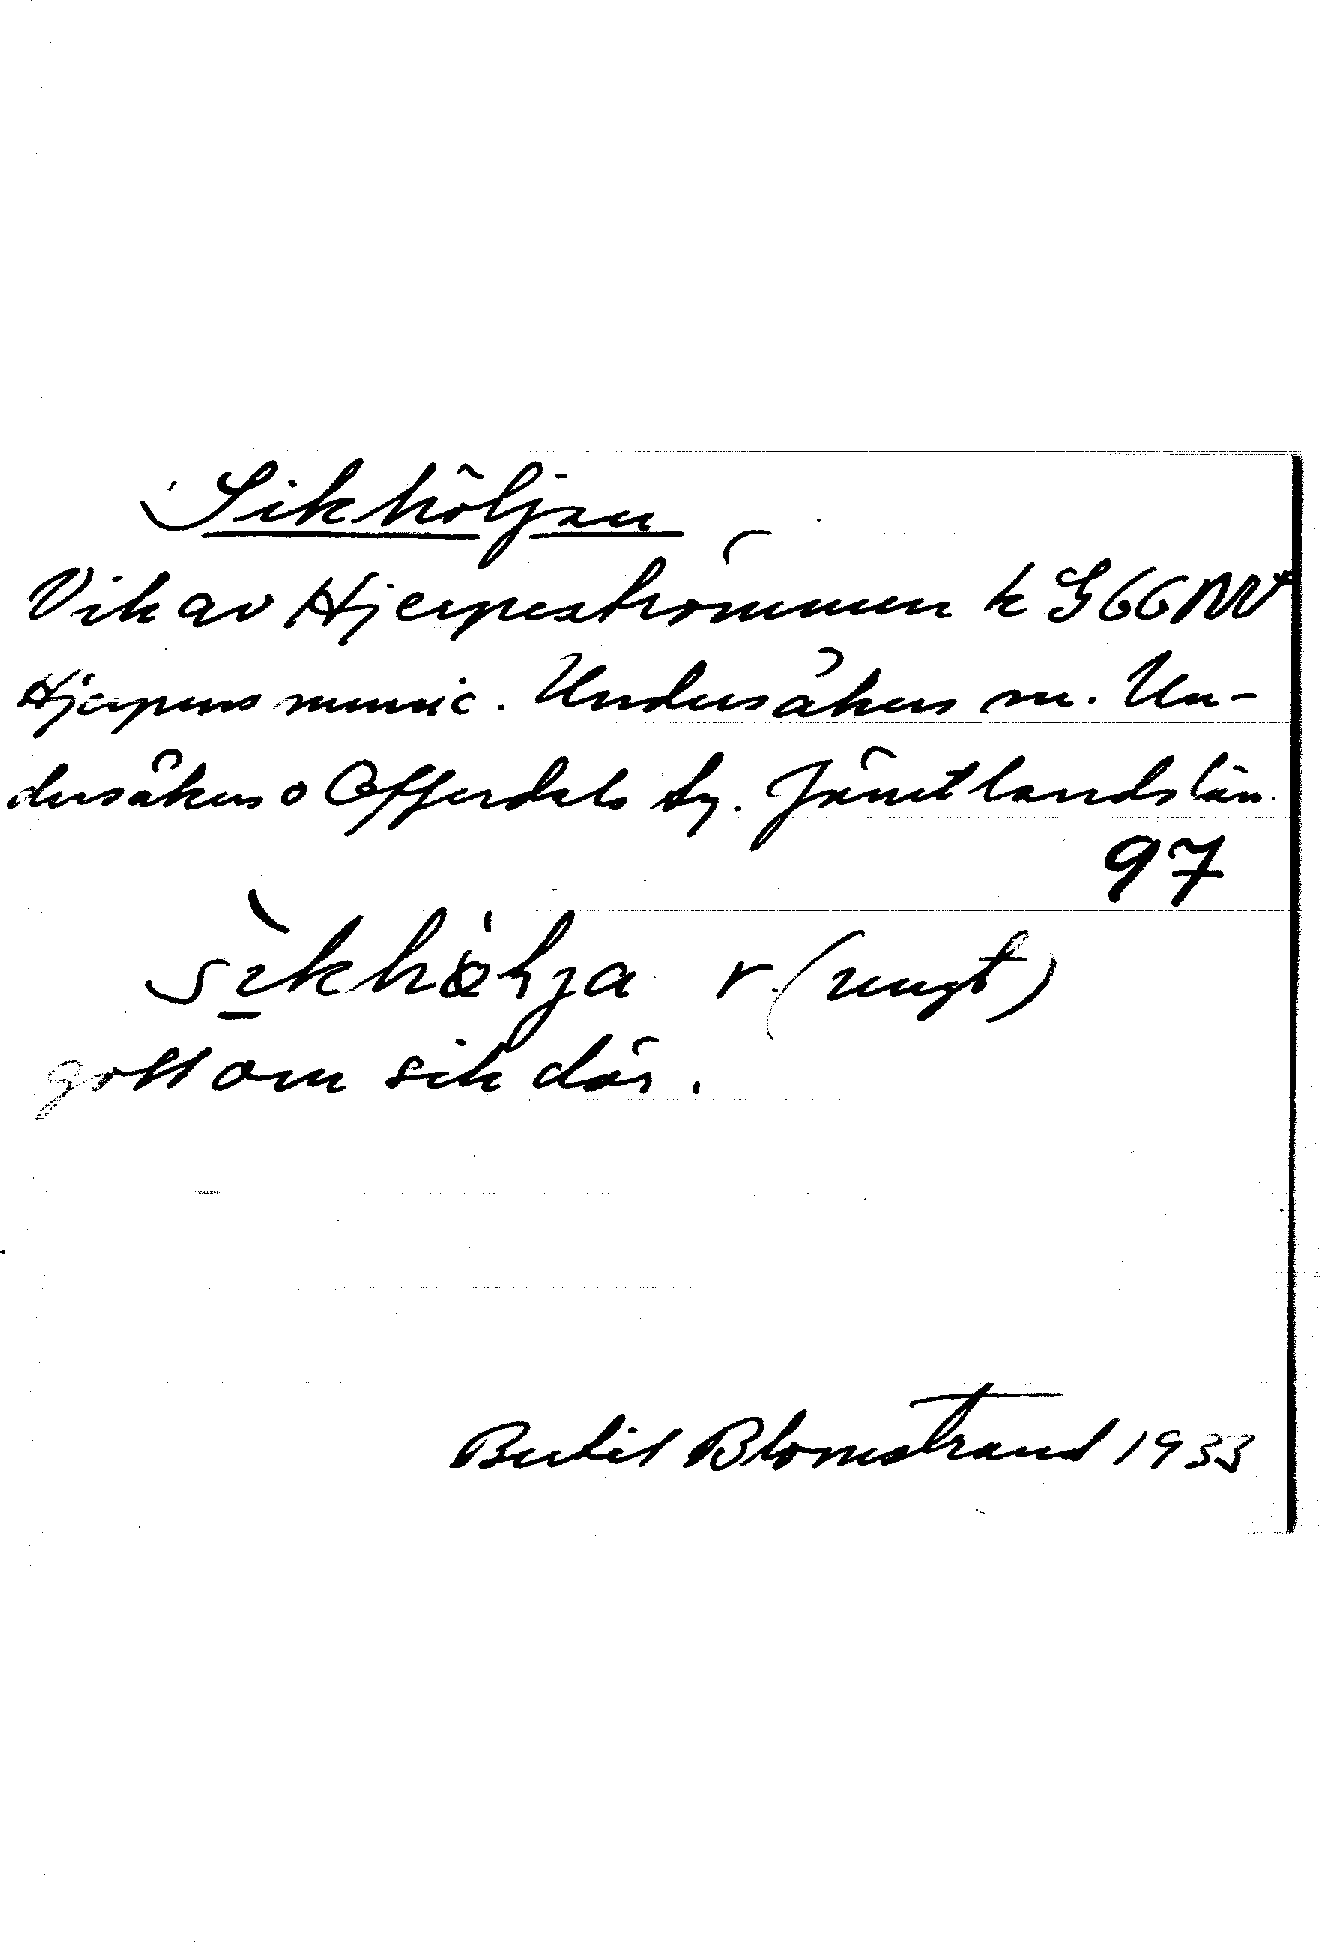 Sikhöljan
Vik av Hjerpeströmmen k G 66 NV
Hjerpens munic. Undersåkers sn. Un-
dersåkers o Offerdals tg. Jämtlands län.
97
r (ungt)
gott om sik där.
Bertil Blomstrand 1933